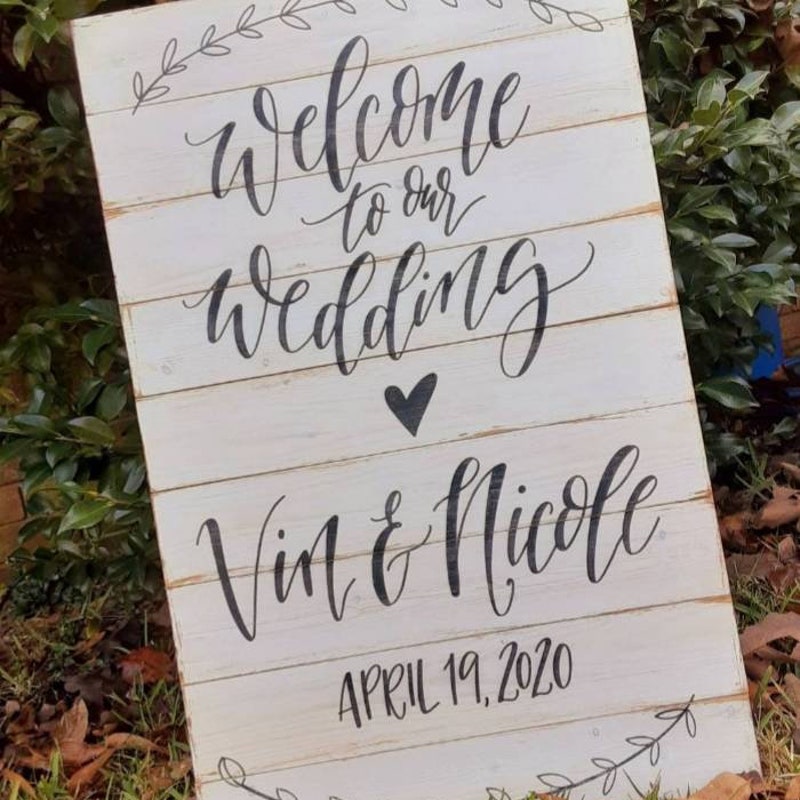 Welcome
to our
Wedding
Vin & Nicole
APRIL 19, 2020